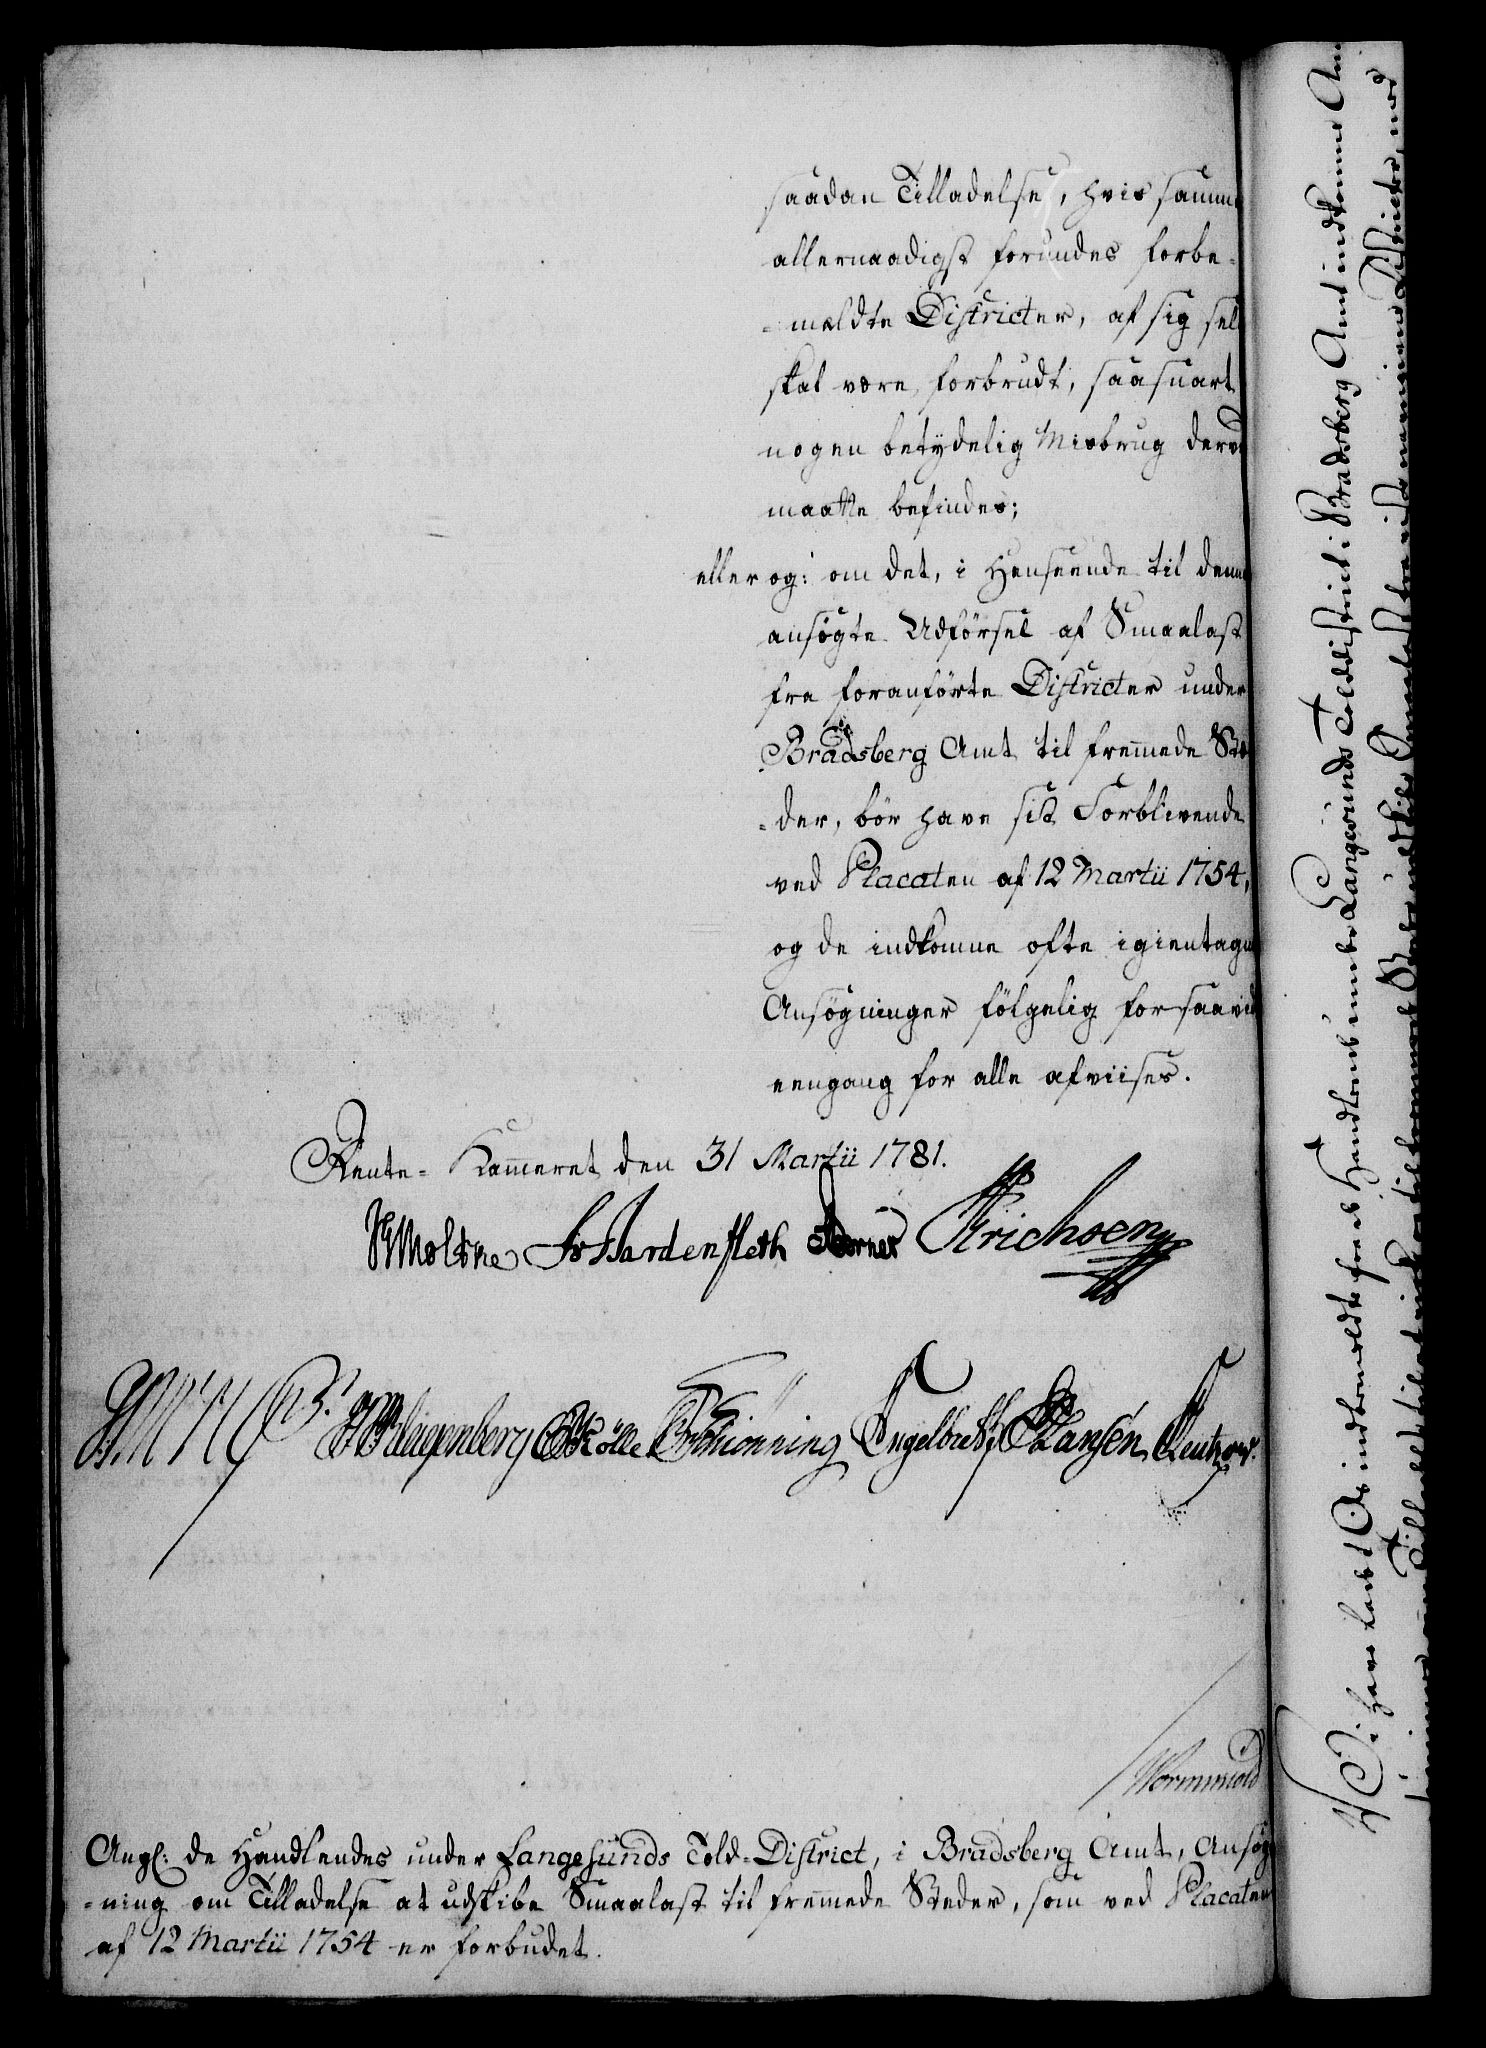 saadan Tilladelse, hvis samme
allernaadigst forundes forbe-
-meldte Districter, af sig sel
skal være forbrudt, saasnart
nogen betydelig Misbrug derve
maatte befindes;
eller og: om det, i Henseende til denne
ansøgte Udførsel af Smaalast
fra foranførte Districter under
Bradsberg Amt til fremmede Stæ
-der, bør have sit Forblivende
ved Placaten af 12 Martii 1754,
og de indkomne ofte igientagne
Ansøgninger følgelig forsaavidt
eengang for alle afviises.
Rente-Kammeret den 31 Martii 1781.
Moltke Hardenfleth Erichsen
Klagenberg Mölle Brönning Engelbret Hansen
Wormwold
Angl: de Handlendes under Langesunds Told-District, i Bradsberg Amt, Ansøg
-ning om Tilladelse at udskibe Smaalast til fremmede Steder, som ved Placaten
af 12 Martii 1754 er forbudet.
Vi have ladet Os indberette fra de Handlende under Langesunds Tolddistrict i Bradsberg Amt indkomne An